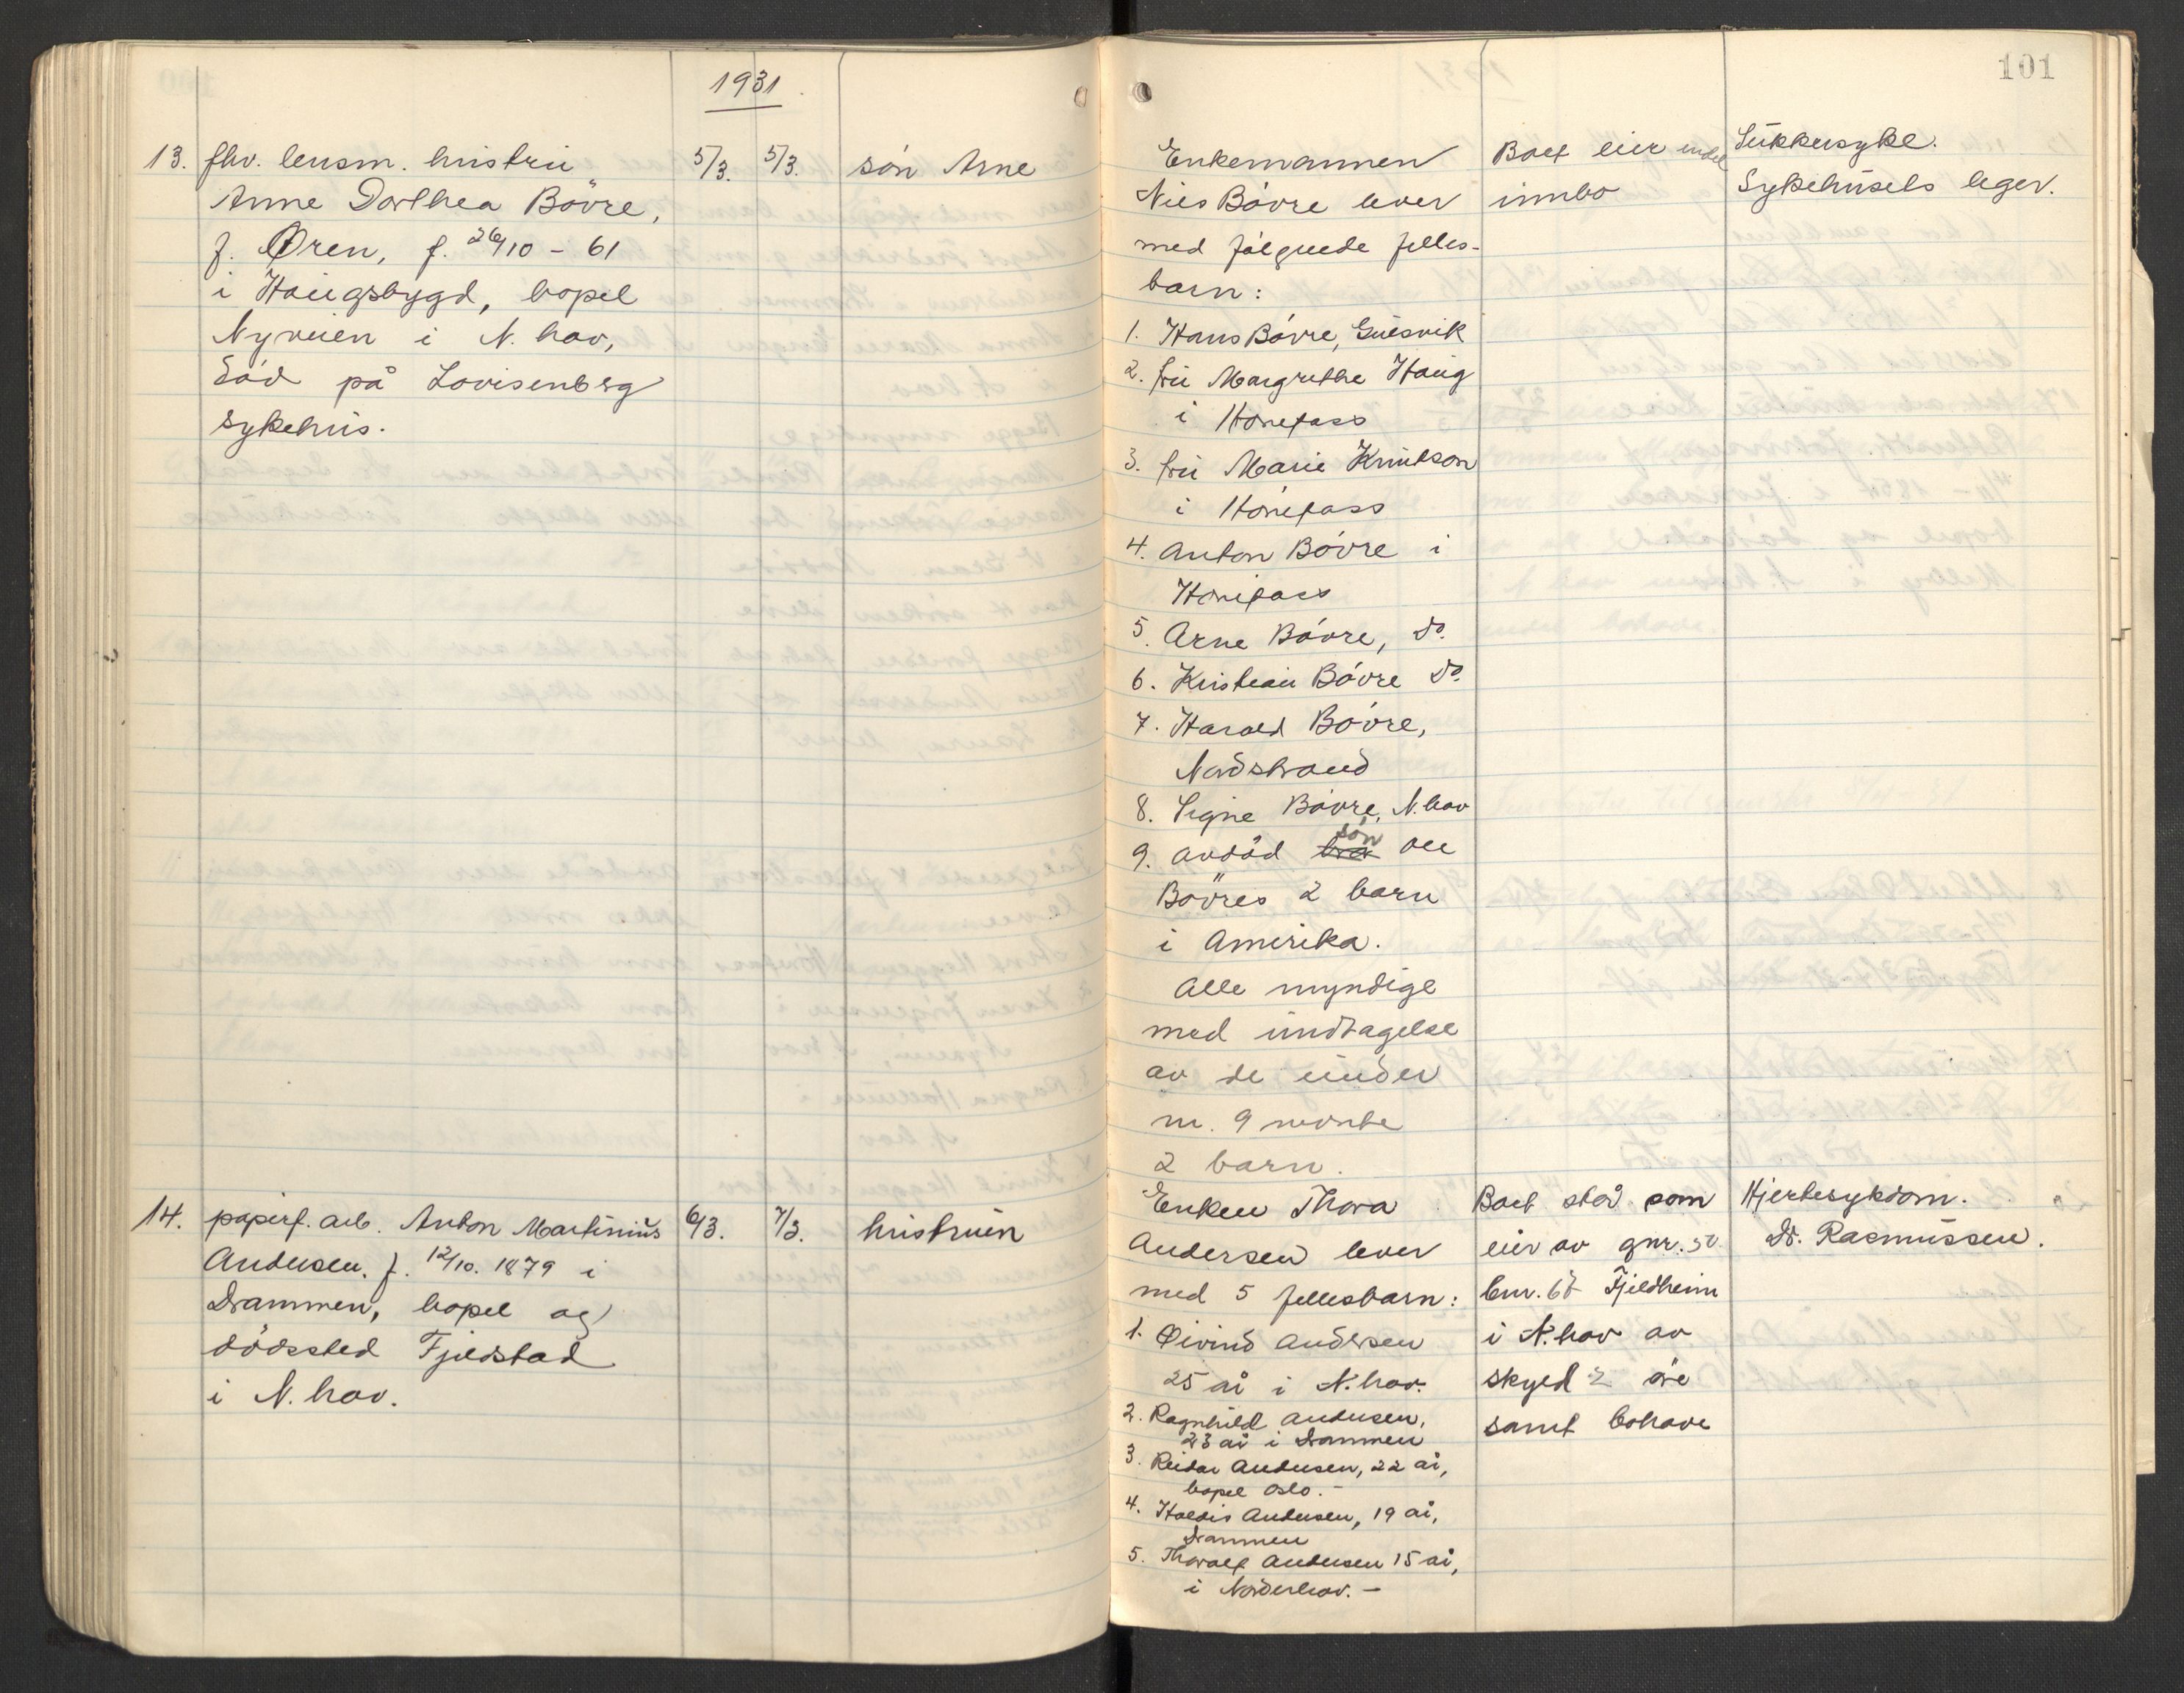 1931
101
13. fhv. lensm. hustru
Anne Dorthea Bövre,
f. Øren, f. 26/10 - 61
i Haugsbygd, bopel
Nyveien i N. hov,
död på Lovisenberg
sykehus.
5/3. 5/3.
sön Arne
Enkemannen
Niels Bövre lever
med følgende felles-
barn:
1. Hans Bövre, Gulsvik
2. fru Margrethe Haug
i Hönefoss
3. fru Marie Knutson
i Hönefoss
4. Anton Bövre i
Hönefoss
5. Arne Bövre, do.
6. Kristian Bövre do.
7. Harald Bövre,
Nordstrand
8. Signe Bövre, N. hov
9. avdöd sön Ole
Bövres 2 barn
i Amerika.
Alle myndige
med undtagelse
av de under
nr. 9 nevnte
2 barn.
Boet eier endel
innbo
Sukkersyke.
Sykehusets leger.
14. papirf. arb. Anton Martinius
Andersen. f. 12/10. 1879 i
Drammen, bopel og
dödssted Fjeldstad
i N. hov.
6/3. 7/3.
hustruen
Enken Thora
Andersen lever
med 5 fellesbarn:
1. Øivind Andersen
25 år i N. hov.
2. Ragnhild Andersen,
23 år i Drammen
3. Reidar Andersen, 22 år,
bopel Oslo. -
4. Haldis Andersen, 19 år,
Drammen
5. Thoralf Andersen 15 år,
i Norderhov. -
Boet står som
eier av gnr. 50
bnr. 67 Fjeldheim
i N. hov av
skyld 2 öre
samt bohave
Hjertesykdom.
Dr. Rasmussen.